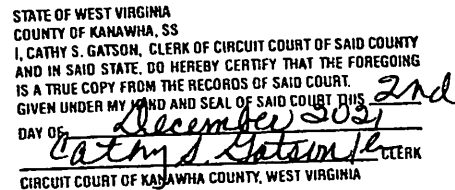 STATE OF WEST VIRGINIA
COUNTY OF KANAWHA, SS
I, CATHY S. GATSON, CLERK OF CIRCUIT COURT OF SAID COUNTY
AND IN SAID STATE, DO HEREBY CERTIFY THAT THE FOREGOING
IS A TRUE COPY FROM THE RECORDS OF SAID COURT.
GIVEN UNDER MY HAND AND SEAL OF SAID COURT THIS 2nd
DAY OF December 2021
Cathy S. Gatson CLERK
CIRCUIT COURT OF KANAWHA COUNTY, WEST VIRGINIA